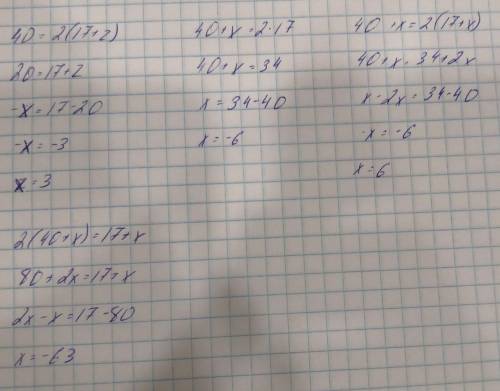 40 = 2(17+z)
20 = 17+z
-x = 17-20
-x = -3
x = 3
40+x = 2·17
40+x = 34
x = 34-40
x = -6
40+x = 2(17+x)
40+x = 34+2x
x-2x = 34-40
-x = -6
x = 6
2(40+x) = 17+x
80+2x = 17+x
2x-x = 17-80
x = -63